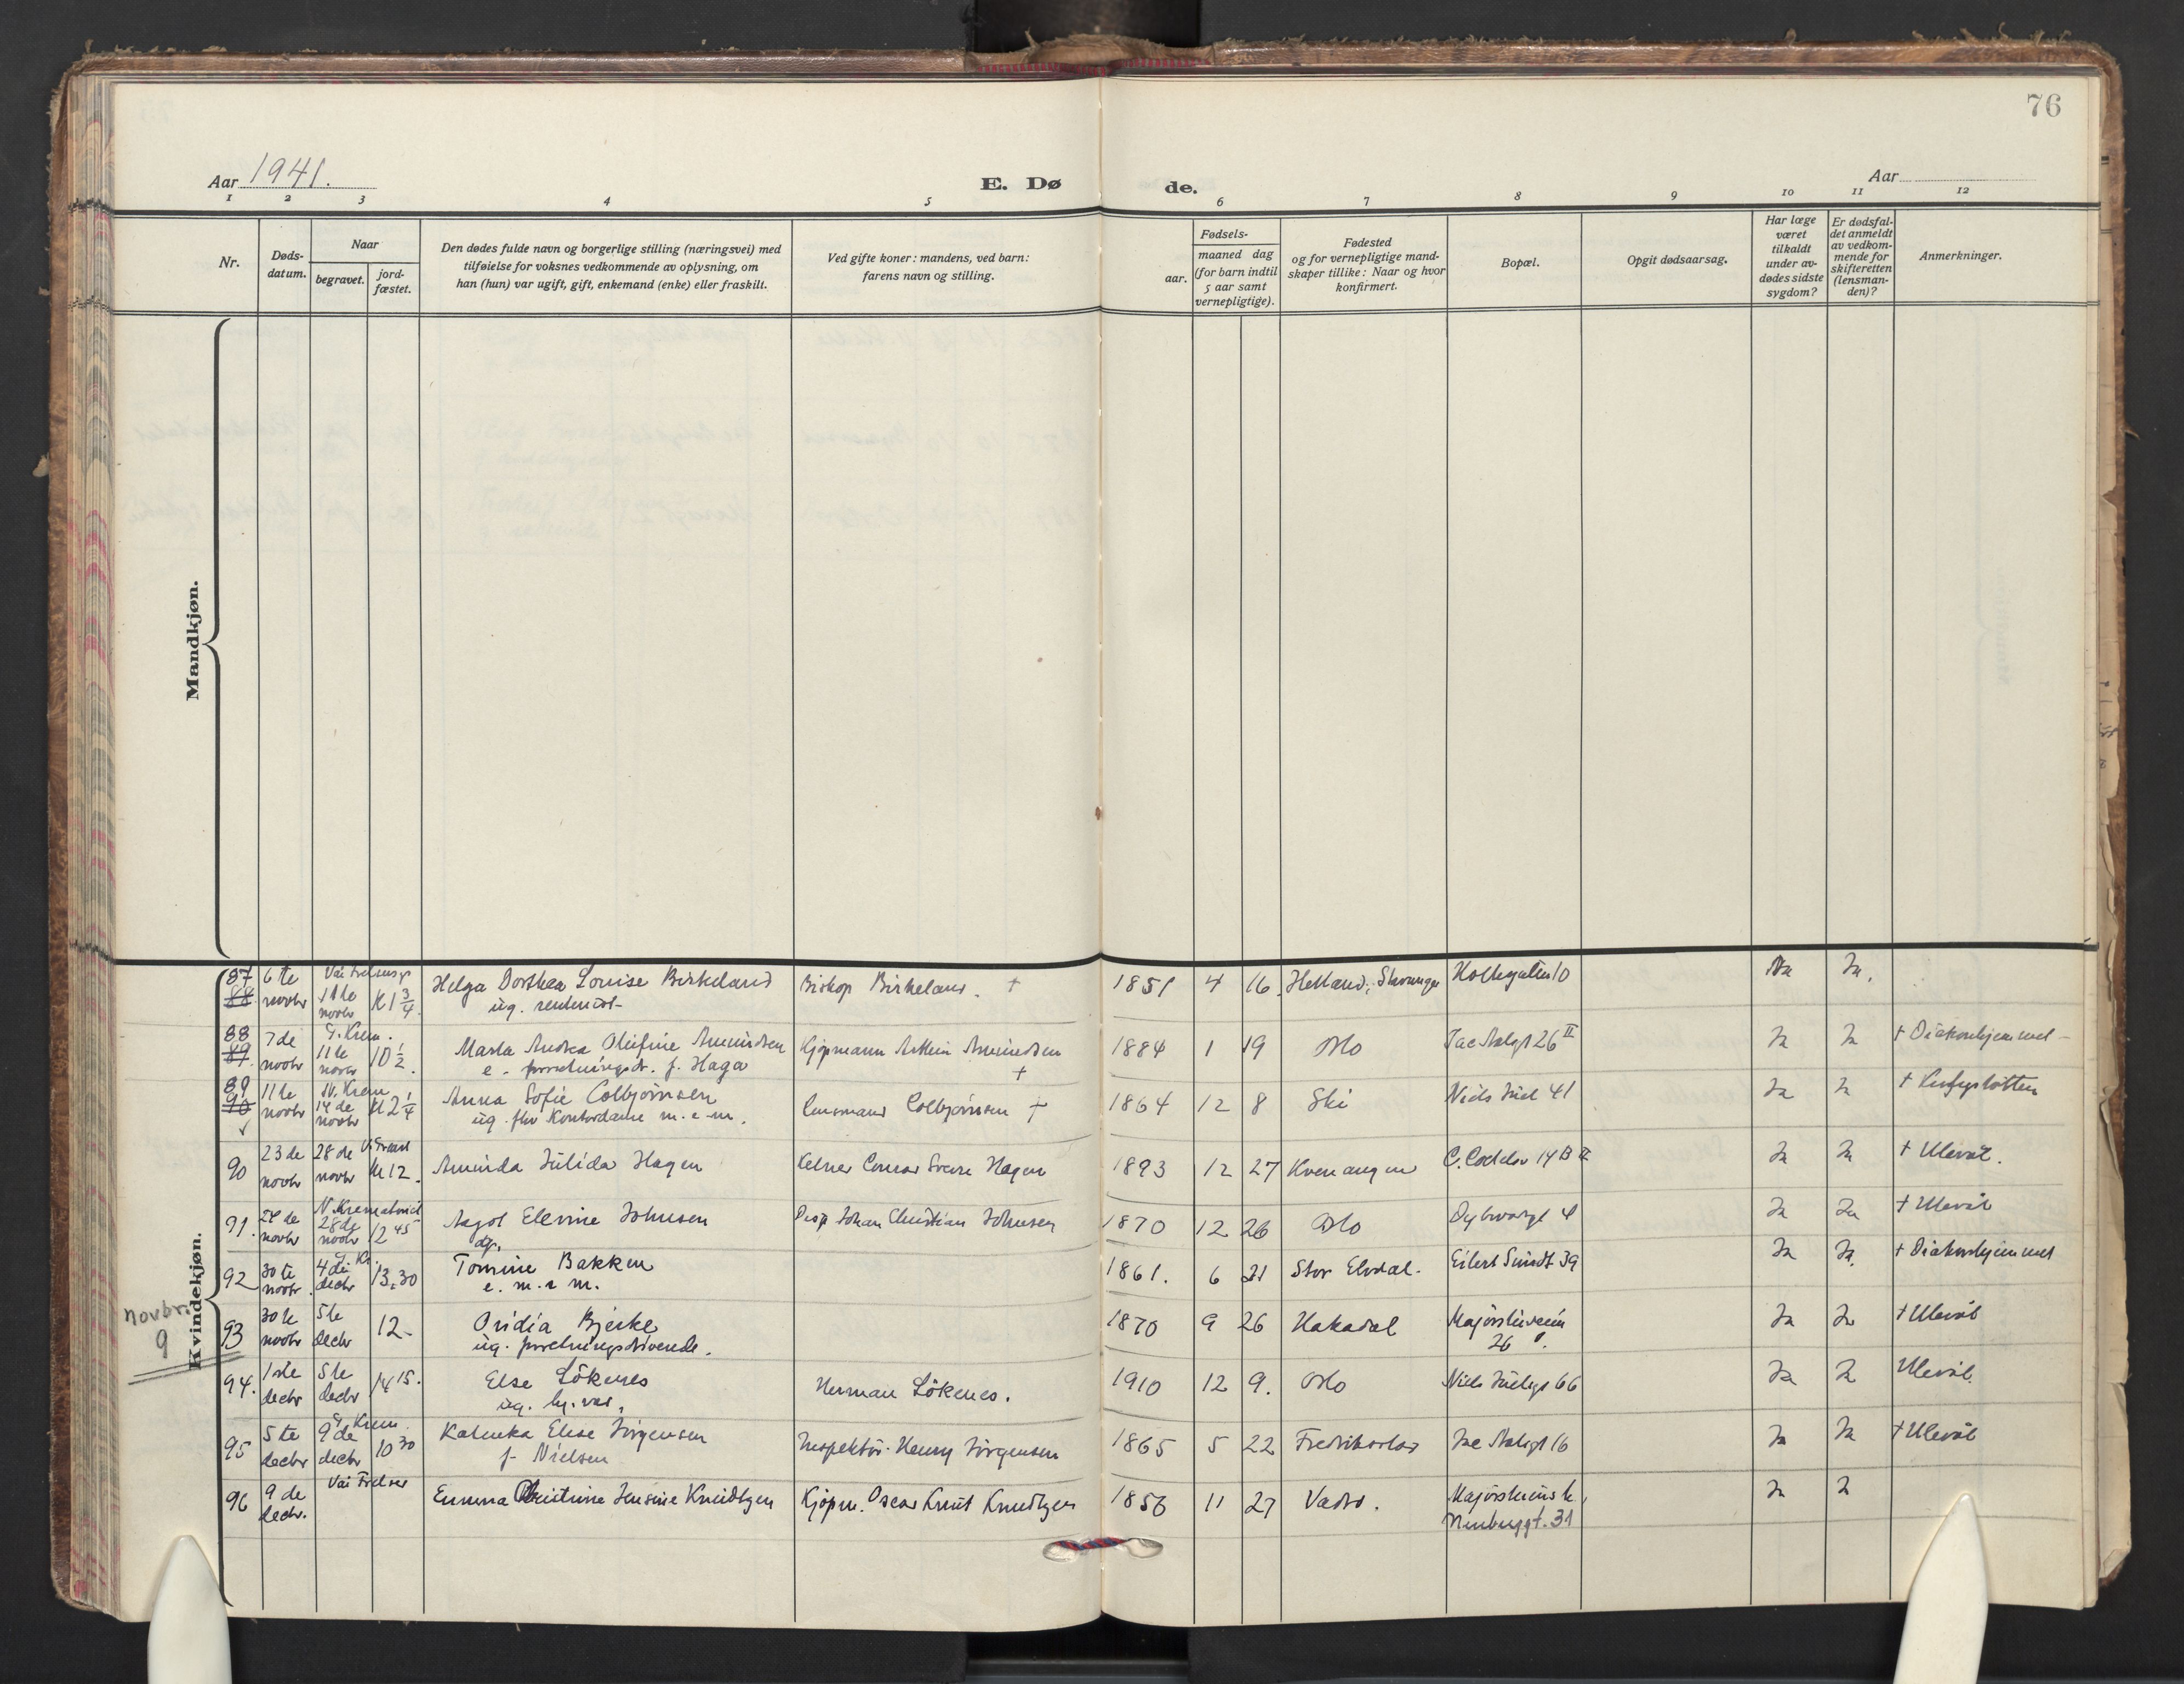 76
Aar 1941.
E. Dø
de.
Aar
1 2 3 4 5 6 7 8 9 10 11 12
Nr.
Døds-
datum.
Naar
begravet.
jord-
fæstet.
Den dødes fulde navn og borgerlige stilling (næringsvei) med
tilføielse for voksnes vedkommende av oplysning, om
han (hun) var ugift, gift, enkemand (enke) eller fraskilt.
Ved gifte koner: mandens, ved barn:
farens navn og stilling.
Fødsels-
aar.
maaned dag
(for barn indtil
5 aar samt
vernepligtige).
Fødested
og for vernepligtige mand-
skaper tillike: Naar og hvor
konfirmert.
Bopæl.
Opgit dødsaarsag.
Har læge
været
tilkaldt
under av-
dødes sidste
sygdom?
Er dødsfal-
det anmeldt
av vedkom-
mende for
skifteretten
(lensman-
den)?
Anmerkninger.
Mandkjøn.
Kvindekjøn.
novbr.
9
87 6te Vår Frelsersgr
88. novbr 11te novbr Kl 1 3/4. Helga Dorthea Louise Birkeland Biskop Birkeland. + 1851 4 16. Hetland, Stavanger Holtegaten 10 Ja Ja.
ug. rentenist
88 7de G. Krem.
89. novbr 11te novbr 10 1/2. Marta Andrea Olufine Amundsen Kjøpmann Amundsen + 1884 1 19 Oslo Jac Aalsgt 26 II Ja Ja + Diakonhjemmet
e. forretningsdr. f. Haga
89 11te N. Krem
90 novbr 14de novbr Kl 2 1/4 Anna Sofie Colbjørnsen Lensmand Colbjørnsen + 1864 12 8 Ski Niels Juel 41 Ja Ja +
ug. fhv Kontordame m. e. m.
90 23de novbr 28de novbr V. Gravl Kl 12. Aminda Julida Hagen Kelner Conrad Sverre Hagen 1893 12 27 Kvenangen C. Colletsv 14 B II Ja Ja + Ulevål.
91. 24de novbr N. Krematoriet 28de novbr 12 45 Aagot Elevine Johnsen Disp Johan Christian Johnsen 1870 12 26 Oslo Dybwadsgt 4 Ja Ja + Ulevål
92 30te novbr. G. Kr. 4de decbr 13.30 Tomine Bakken 1861. 6 21 Stor Elvdal. Eilert Sundt 39 Ja Ja. + Diakonhjemmet
e. m. e m.
93 30te novbr 5te decbr 12- Ovidia Bjerke 1870 9 26 Hakadal Majorstuveien Ja Ja + Ulevål
ug. forretningsdrivende. 26
94. 1ste decbr 5te decbr 14 15. Else Løkenes Herman Løkenes. 1910 12 9. Oslo Niels Juelsgt 66 Ja Ja Ulevål.
95 5te decbr G. Krem. 9de decbr 10 30 Kalinka Elise Jörgensen Inspektör. Henry Jörgensen 1865 5 22 Fredrikstad Jac Aalsgt 16 Ja Ja + Ulevål
f. Nielsen
96 9de decbr. Vår Frelser Emma Jensine Knudtzen Kjöpm. Oscar Knut Knudtzen 1856 11 27 Vadsö. Ja Ja